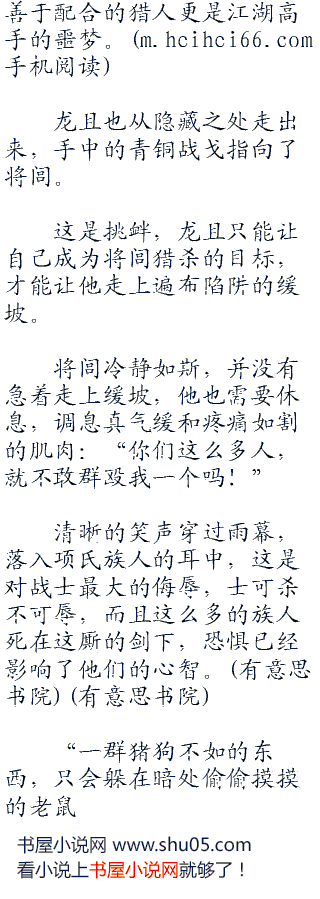 善于配合的猎人更是江湖高
手的噩梦。(m.hcihci66.com
手机阅读)
龙且也从隐藏之处走出
来，手中的青铜战戈指向了
将闾。
这是挑衅，龙且只能让
自己成为将闾猎杀的目标，
才能让他走上遍布陷阱的缓
坡。
将闾冷静如斯，并没有
急着走上缓坡，他也需要休
息，调息真气缓和疼痛如割
的肌肉：“你们这么多人，
就不敢群殴我一个吗！”
清晰的笑声穿过雨幕，
落入项氏族人的耳中，这是
对战士最大的侮辱，士可杀
不可辱，而且这么多的族人
死在这厮的剑下，恐惧已经
影响了他们的心智。(有意思
书院)(有意思书院)
“一群猪狗不如的东
西，只会躲在暗处偷偷摸摸
的老鼠
书屋小说网 www.shu05.com
看小说上书屋小说网就够了！